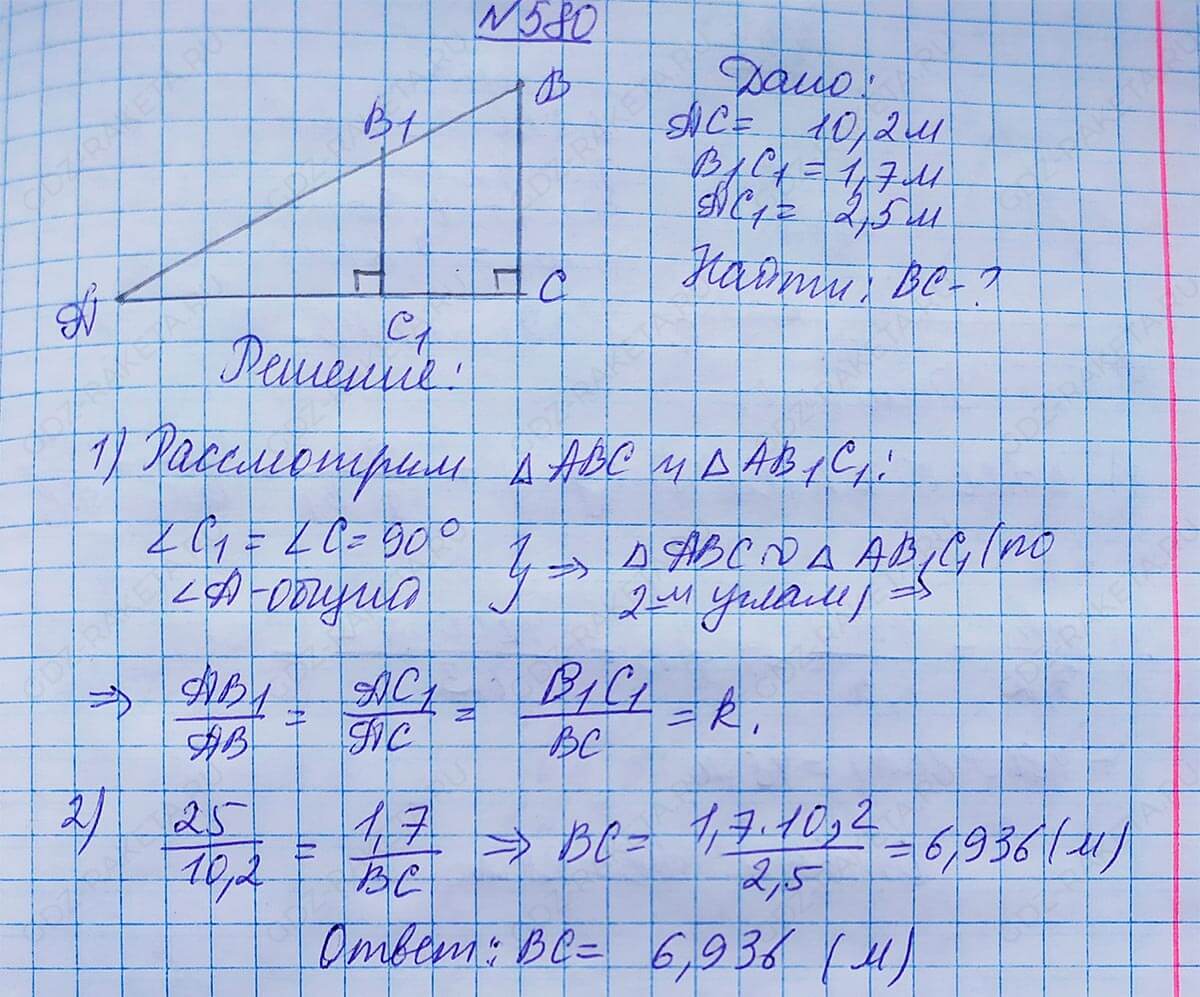 №580
B
B1
A
C1
C
Дано:
AC = 10,2 м
B1C1 = 1,7 м
AC1 = 2,5 м
Найти: BC-?
Решение:
1) Рассмотрим △ABC и △AB1C1:
∠C1 = ∠C = 90° } ⇒ △ABC ∾ △AB1C1 (по
∠A - общий 2-м углам) ⇒
⇒ AB1/AB = AC1/AC = B1C1/BC = k.
2) 25/10,2 = 1,7/BC ⇒ BC = 1,7·10,2/2,5 = 6,936 (м)
Ответ: BC = 6,936 (м)
GDZ-RAKETA.RU